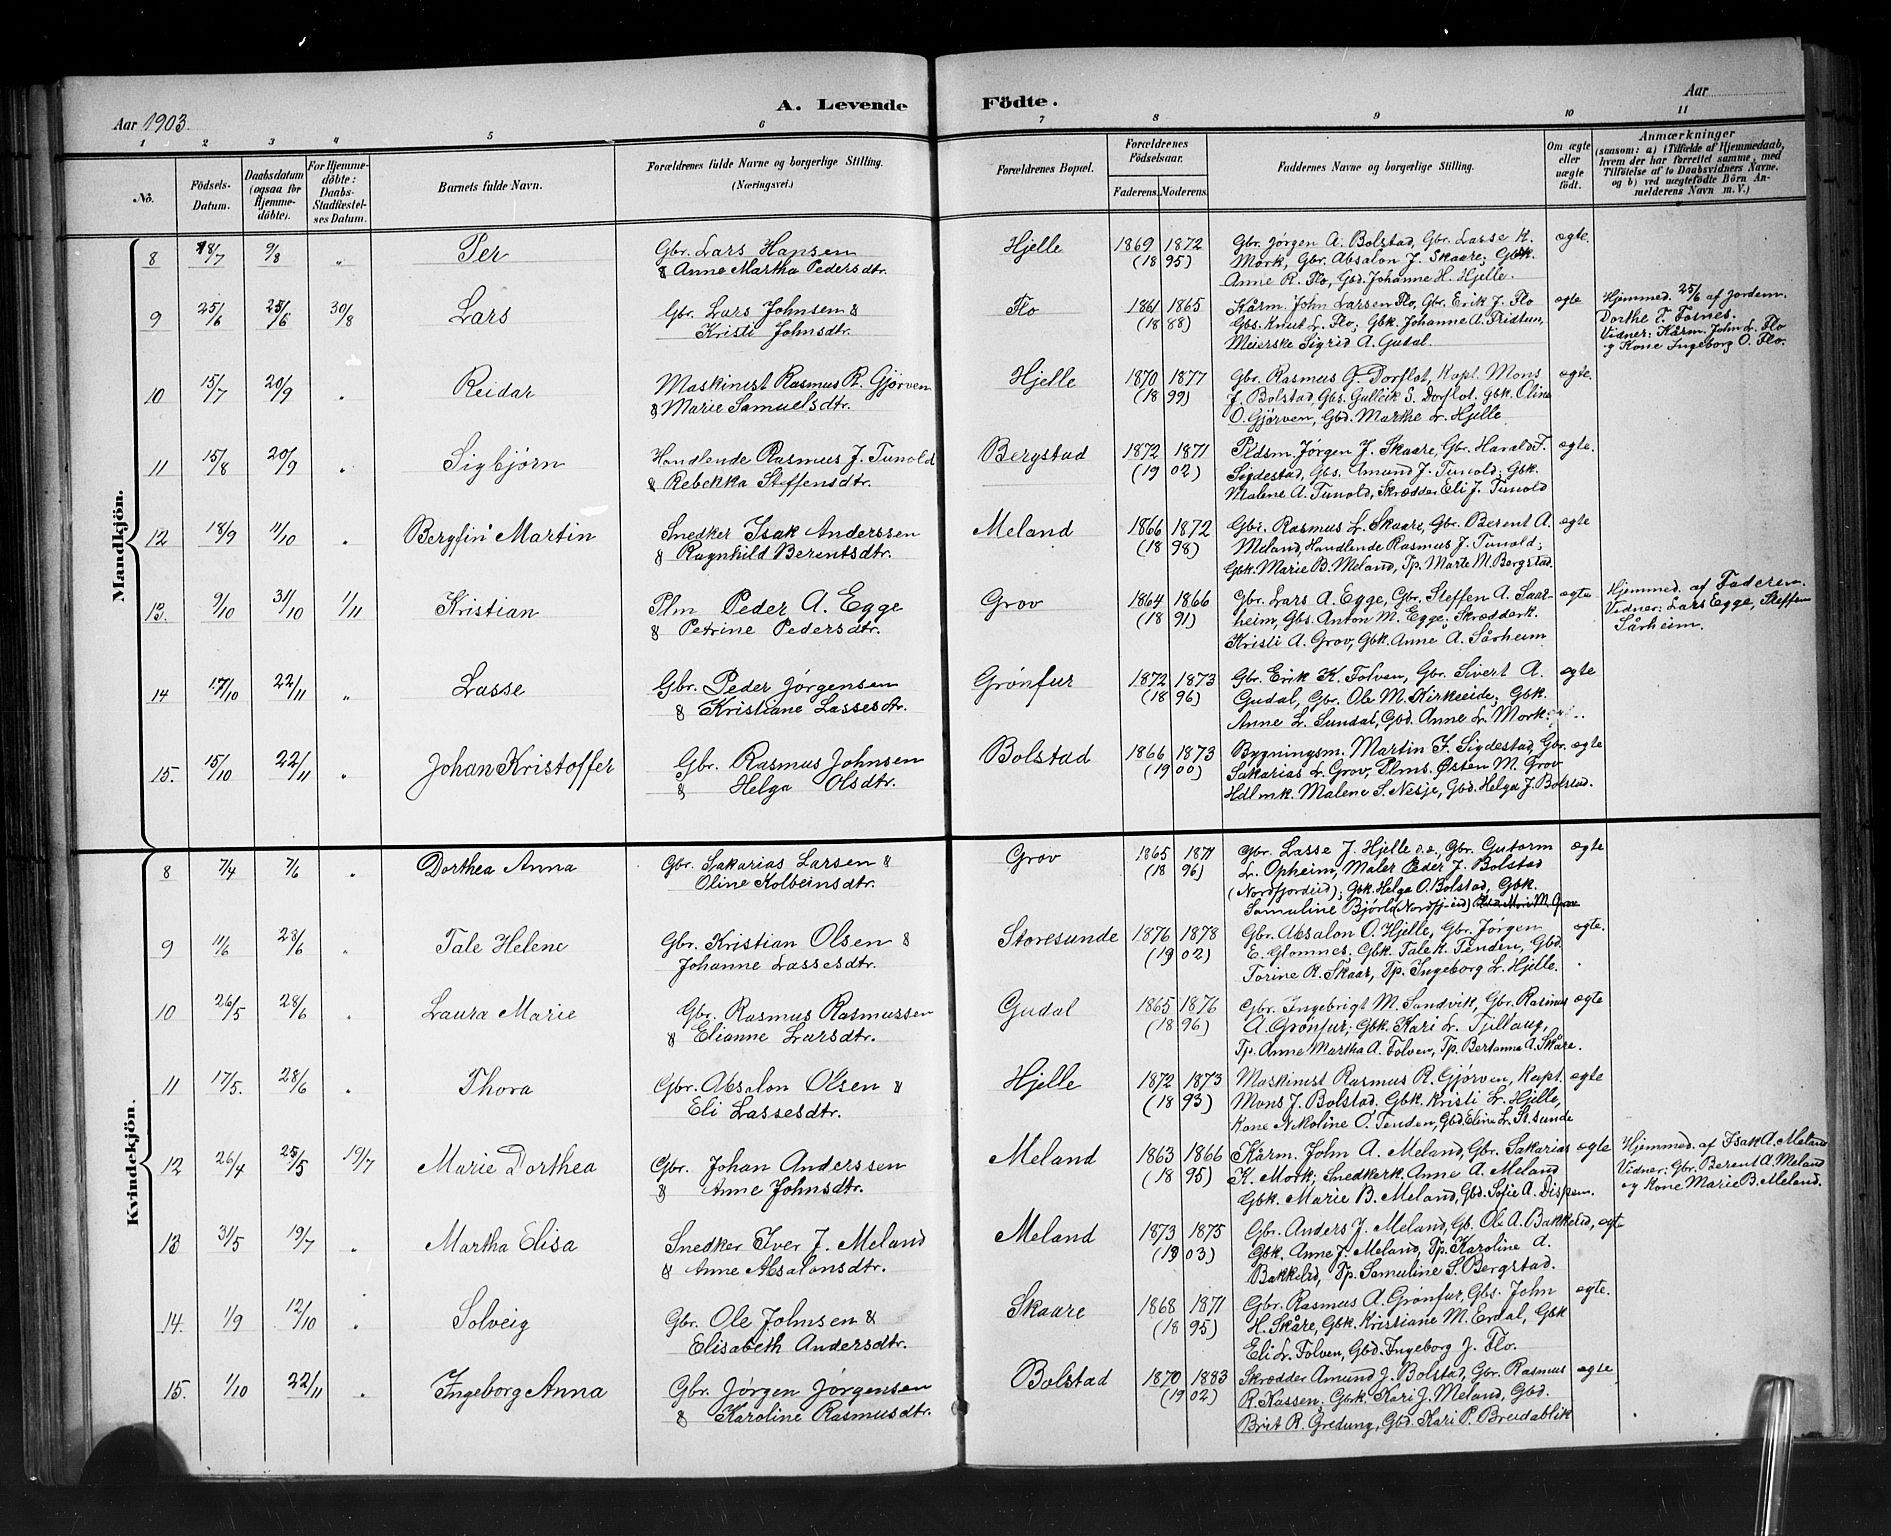 A. Levende Födte.
Aar 1903.
Aar
1 2 3 4 5 6 7 8 9 10 11
No.
Födsels-Datum.
Daabsdatum (ogsaa for Hjemme-döbte).
For Hjemme-döbte: Daabs-Stadfæstel-ses Datum.
Barnets fulde Navn.
Forældrenes fulde Navne og borgerlige Stilling. (Næringsvei.)
Forældrenes Bopæl.
Forældrenes Födselsaar.
Faderens. Moderens.
Faddernes Navne og borgerlige Stilling.
Om ægte eller uægte födt.
Anmærkninger
(saasom: a) i Tilfælde af Hjemmedaab, hvem der har forrettet samme, med Tilföielse af to Daabsvidners Navne. og b) ved uægtefödte Börn An-melderens Navn m. V.)
Mandkjön.
8 18/7 9/8 " Per
Gbr. Lars Hansen
& Anne Martha Pedersdtr.
Hjelle 1869 1872
(1895)
Gbr. Jørgen A. Bolstad, Gbr. Lasse K.
Mork, Gbr. Absalon J. Skaare; Gbk.
Anne R. Flo, Gbd. Johanne H. Hjelle.
ægte.
9 25/6 25/6 30/8 Lars
Gbr. Lars Johnsen &
Kristi Johnsdtr.
Flo 1861 1865
(1888)
Kårm. John Larsen Flo, Gbr. Erik J. Flo
Gbs. Knut L. Flo; Gbk. Johanne A. Fridtun,
Meierske Sigrid A. Gudal.
ægte
Hjemmed. 25/6 af Jordem.
Dorthe T. Fosnes.
Vidner: Kårm. John L. Flo
og Kone Ingeborg O. Flo.
10 15/7 20/9 " Reidar
Maskinist Rasmus R. Gjörven
& Marie Samuelsdtr.
Hjelle 1870 1877
(1899)
Gbr. Rasmus G. Dorflot, Kapt. Mons
J. Bolstad, Gbs. Gulleik S. Dorflot. Gbk. Oline
O. Gjörven, Gbd. Marthe L. Hjelle.
ægte.
11 15/8 20/9 " Sigbjørn
Handlende Rasmus J. Tunold
& Rebekka Steffensdtr.
Bergstad 1872 1871
(1902)
Pldsm. Jørgen J. Skaare, Gbr. Harald F.
Sigdestad, Gbs. Amund J. Tunold; Gbk.
Malene A. Tunold, Skrædder Eli J. Tunold
ægte.
12 18/9 11/10 " Bergfin Martin
Snedker Isak Anderssen
& Ragnhild Berentsdtr.
Meland 1866 1872
(1898)
Gbr. Rasmus L. Skaare, Gbr. Berent A.
Meland, Handlende Rasmus J. Tunold;
Gbk. Marie B. Meland, Tp. Marte M. Bergstad.
ægte
13. 9/10 31/10 1/11 Kristian
Plm Peder A. Egge
& Petrine Pedersdtr.
Grov 1864 1866
(1891)
Gbr. Lars A. Egge, Gbr. Steffen A. Saar-
heim, Gbs. Anton M. Egge; Skrædderk.
Kristi A. Grov, Gbk. Anne A. Sårheim
ægte
Hjemmed. af Faderen.
Vidner: Lars Egge, Steffen
Sårheim.
14 17/10 22/11 " Lasse
Gbr. Peder Jørgensen
& Kristiane Lassesdtr.
Grønfur 1872 1873
(1896)
Gbr. Erik K. Folven, Gbr. Sivert A.
Gudal, Gbr. Ole M. Kirkeeide; Gbk.
Anne L. Sundal, Gbd. Anne L. Mork.
ægte
15. 15/10 22/11 " Johan Kristoffer
Gbr. Rasmus Johnsen
& Helga Olsdtr.
Bolstad 1866 1873
(1900)
Bygningsm. Martin F. Sigdestad, Gbr.
Sakarias L. Grov, Plms. Østen M. Grov
Hdlmk. Malene S. Nesje, Gbd. Helga J. Bolstad.
ægte
Kvindekjön.
8 7/4 7/6 " Dorthea Anna
Gbr. Sakarias Larsen &
Oline Kolbeinsdtr.
Grov 1865 1871
(1896)
Gbr. Lasse J. Hjelle o.a., Gbr. Gutorm
L. Opheim, Maler Peder J. Bolstad
(Nordfjordeid); Gbk. Helga O. Bolstad, Gbk.
Samuline Bjørlo (Nordfj-eid)
ægte
9 11/6 28/6 " Tale Helene
Gbr. Kristian Olsen &
Johanne Lassesdtr.
Storesunde 1876 1878
(1902)
Gbr. Absalon O. Hjelle, Gbr. Jørgen
E. Glomnes. Gbk. Tale K. Tenden, Gbd.
Torine R. Skaar, Tp. Ingeborg L. Hjelle.
ægte.
10 26/5 28/6 " Laura Marie
Gbr. Rasmus Rasmussen
& Elianne Larsdtr.
Gudal 1865 1876
(1896)
Gbr. Ingebrigt M. Sandvik, Gbr. Rasmus
A. Grønfur; Gbk. Kari L. Tjellaug,
Tp. Anne Martha A. Folven, Tp. Bertanna A. Skåre.
ægte
11 17/5. 28/6 " Thora
Gbr. Absalon Olsen &
Eli Lassesdtr.
Hjelle 1872 1873
(1893)
Maskinist Rasmus R. Gjörven, Kapt.
Mons J. Bolstad. Gbk. Kristi L. Hjelle,
Kone Nikoline O. Tenden, Gbd. Eline L. St.sunde
ægte
12 26/4 25/5 19/7 Marie Dorthea
Gbr. Johan Anderssen
& Anne Johnsdtr.
Meland 1863 1866
(1895)
Kårm. John A. Meland, Gbr. Sakarias
K. Mork; Snedkerk. Anne A. Meland
Gbk. Marie B. Meland, Gbd. Sofie A. Dispen.
ægte
Hjemmed. af Isak A. Meland
Vidner: Gbr. Berent A. Meland
og Kone Marie B. Meland.
13 31/5 19/7 " Martha Elisa
Snedker Iver J. Meland
& Anne Absalonsdtr.
Meland 1873 1875
(1903)
Gbr. Anders J. Meland, Gb. Ole A. Bakkelid,
Gbk. Anne J. Meland, Tp. Karoline A.
Bakkelid, Tp. Samuline S. Bergstad.
ægte
14. 1/9 12/10 " Solveig
Gbr. Ole Johnsen &
Elisabeth Andersdtr.
Skaare 1868 1871
(1895)
Gbr. Rasmus A. Grønfur, Gbs. John
H. Skåre, Gbk. Kristiane M. Erdal, Gbk
Eli L. Folven, Gbd. Ingeborg J. Flo.
ægte.
15. 1/10 22/11 " Ingeborg Anna
Gbr. Jørgen Jørgensen
& Karoline Rasmusdtr.
Bolstad 1870 1883
(1902)
Skrædder Amund J. Bolstad, Gbr. Rasmus
R. Kassen, Gbrk. Kari J. Meland, Gbd.
Brit R. Gredung, Gbd. Kari P. Breidablik
ægte